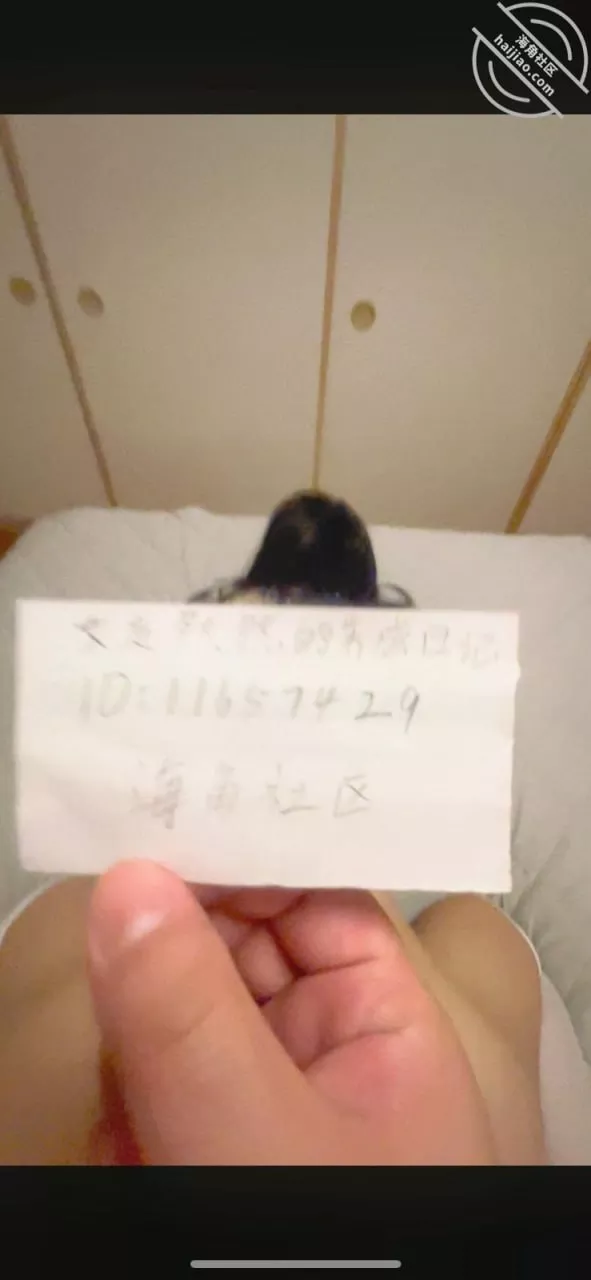 海角社区
haijiao.com
女友 的 日记
ID:11657429
海角社区